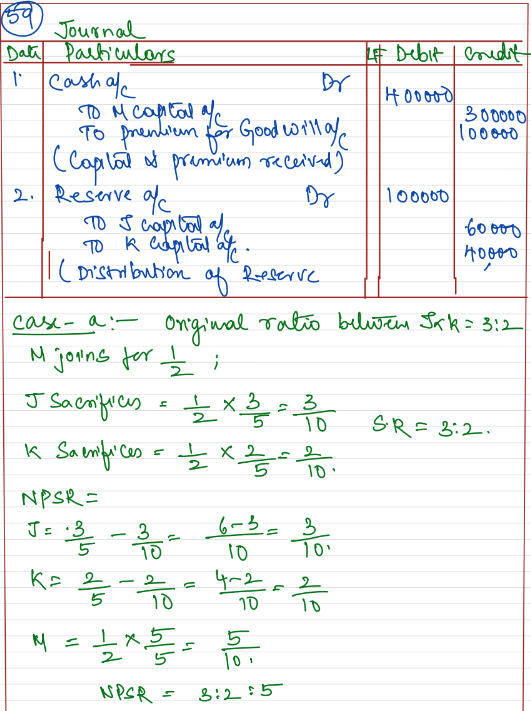 59
Journal
Date Particulars LF Debit Credit
1. Cash a/c Dr 400000
To M capital a/c 300000
To premium for Goodwill a/c 100000
(Capital & premium received)
2. Reserve a/c Dr 100000
To J capital a/c 60000
To K capital a/c. 40000
(Distribution of Reserve
case - a :- Original ratio between J & K = 3:2
M joins for 1/2 ;
J Sacrifices = 1/2 × 3/5 = 3/10
S.R = 3:2.
K Sacrifices = 1/2 × 2/5 = 2/10.
NPSR =
J = 3/5 - 3/10 = 6-3/10 = 3/10.
K = 2/5 - 2/10 = 4-2/10 = 2/10
M = 1/2 × 5/5 = 5/10.
NPSR = 3:2:5